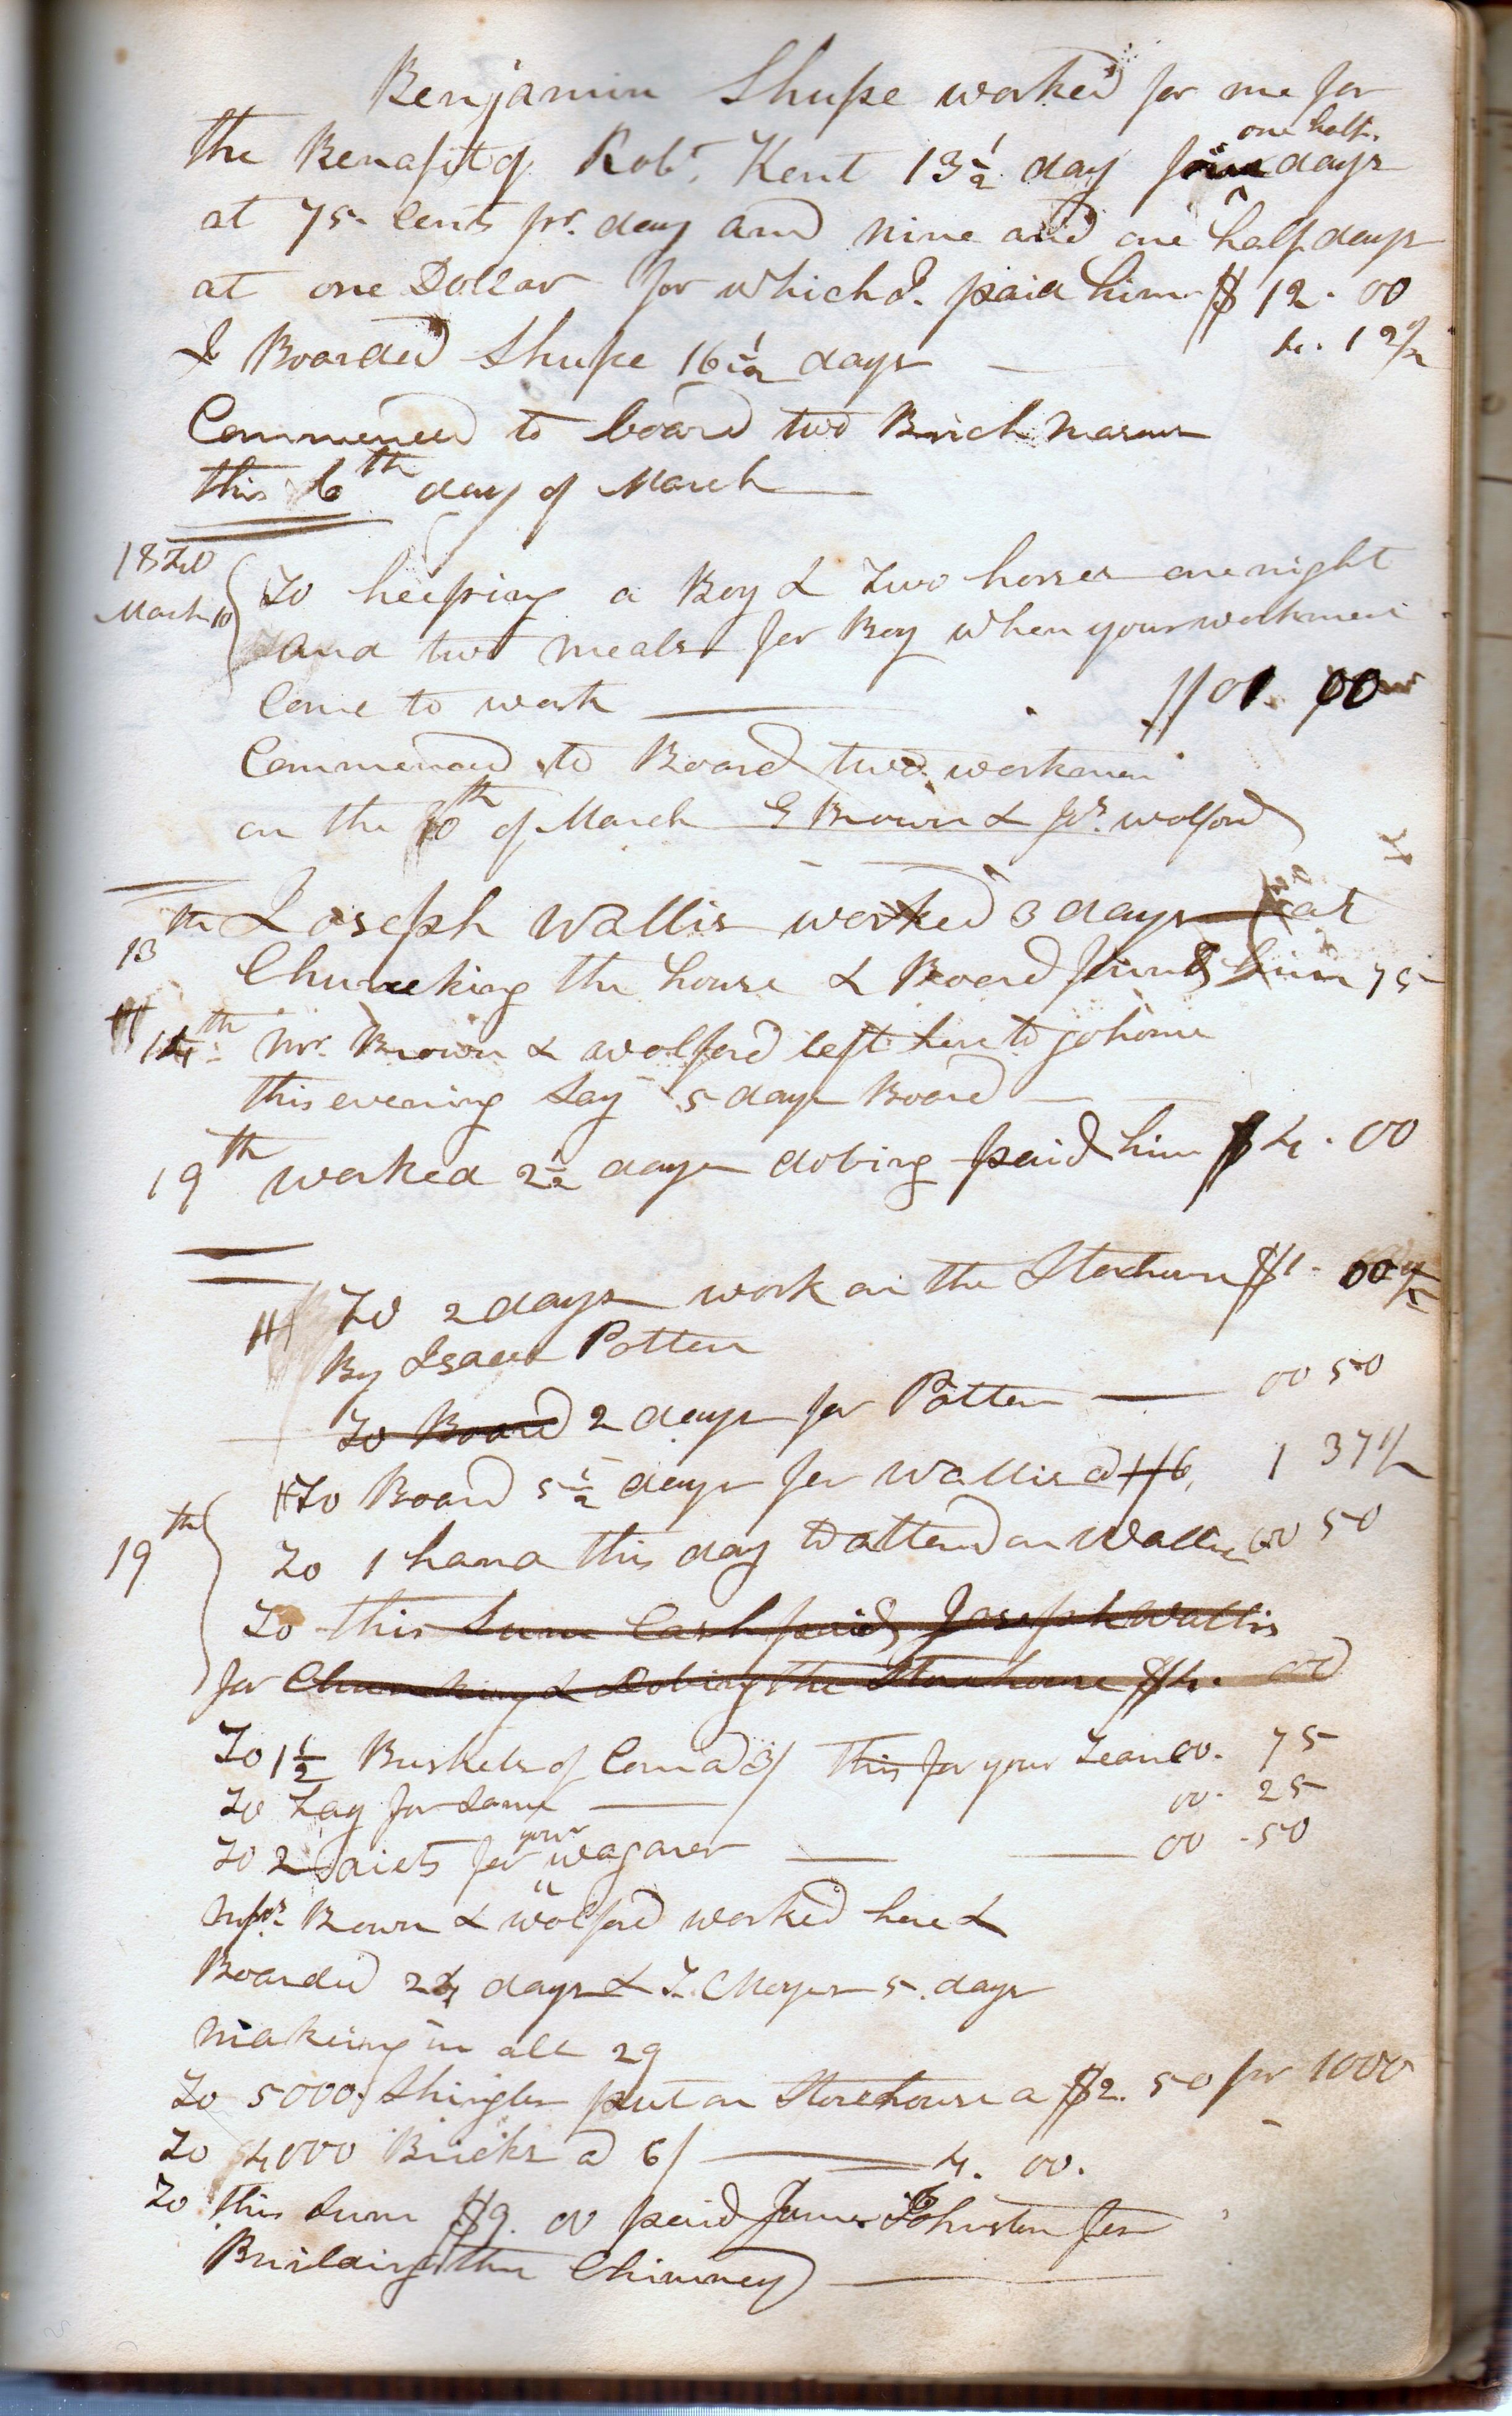 Benjamin Shupe worked for me for
the Benafit of Robt. Kent 13 1/2 day four one half days
at 75 Cents pr. day and nine and one half days
at one Dollar for which I paid him $ 12. 00
I Boarded Shupe 16 1/2 days 4. 12 1/2
Commenced to board two Brick Masons
this 6th day of March
1820
March 10 To keeping a Boy & Two horses one night
and two meals for Boy when your workmen
Come to work $01. 00
Commenced to Board two workmen
on the 10th of March G Brown & Jos. wolford
13th Joseph Wallis worked 3 days at
Chuncking the house & Board found him 75
14th Mr. Brown & wolford left here to go home
this evening Say 5 days Board
19th worked 2 1/2 days dobing paid him $4. 00
To 2 days work on the Storhouse $1.
By Isaac Potten
To Board 2 days for Potten 00 50
To Board 5 1/2 days for Wallis @ 1/6, 1 37 1/2
19th To 1 hand this day to attend on Wallis 00 50
To this Sum Cash paid Joseph Wallis
for Chuncking & Dobing the Storhouse $4. 00
To 1 1/2 Bushels of Corn a 3/ this for your Team 00. 75
To Hay for Same 00. 25
To 2 Diets for your wagoner 00 - 50
Brown & wolford worked here &
Boarded 24 days & Moyers 5. days
making in all 29
To 5000 Shingles put on Storehouse a $2. 50 pr 1000
To 4000 Bricks a 6/ 4. 00.
To this Sum $9. 00 paid James Johnston for
Building the Chimney